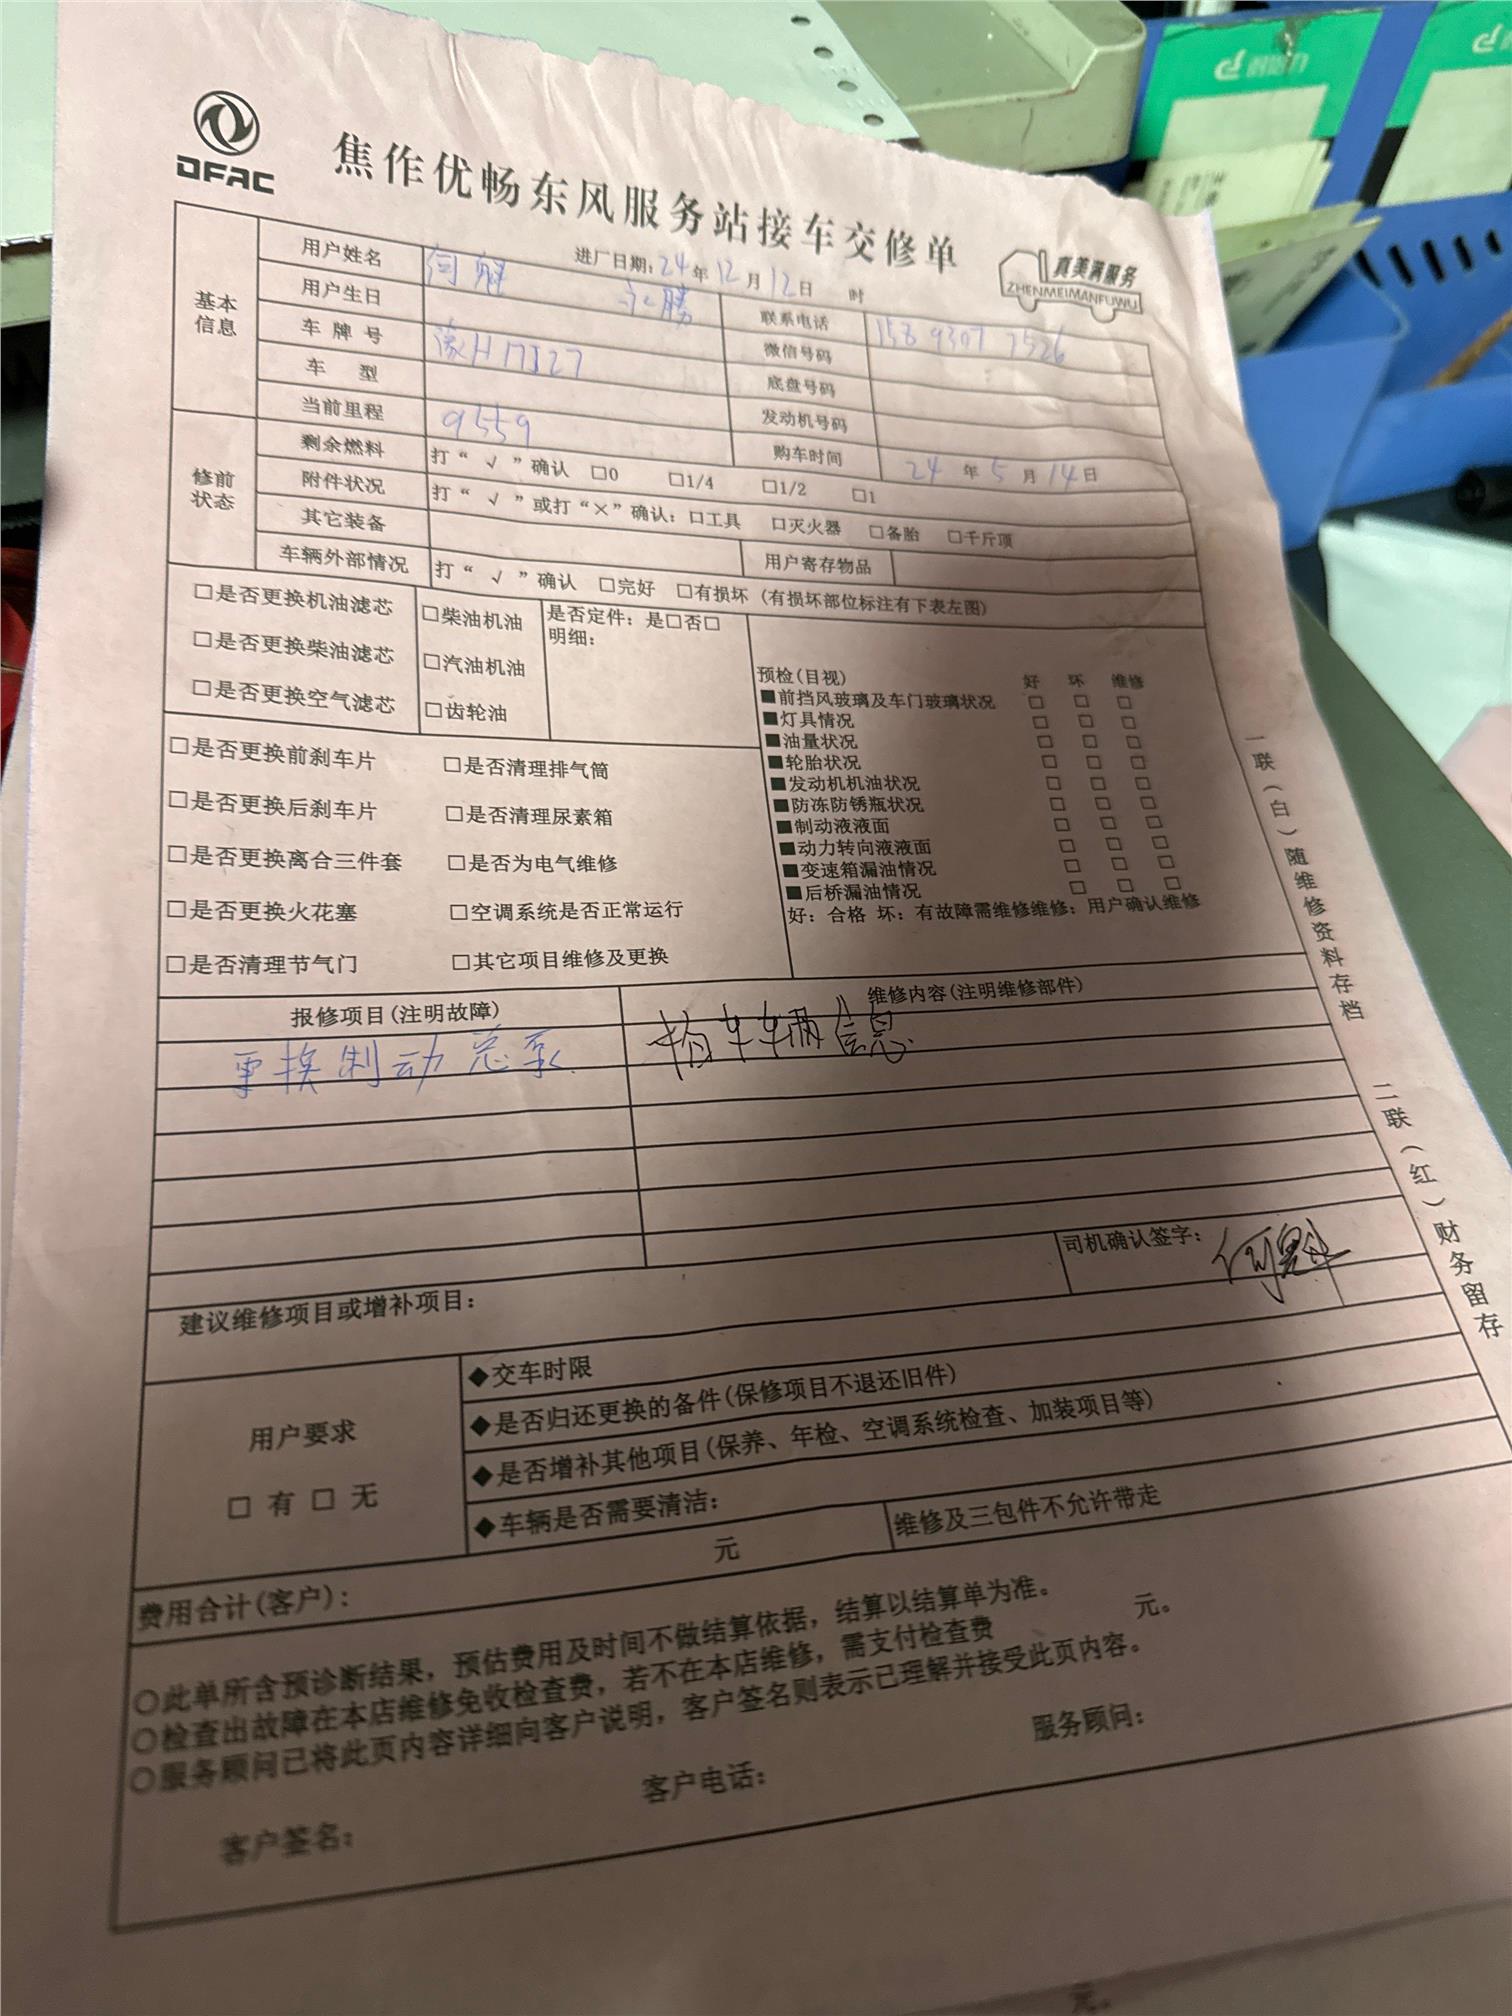 DFAC
焦作优畅东风服务站接车交修单
真美满服务
ZHENMEIMANFUWU
进厂日期:24年12月12日 时
基本信息
用户姓名 何魁 永勝 联系电话
用户生日 微信号码
车牌号 豫H 底盘号码
车型 发动机号码
当前里程 9559 购车时间 24年5月14日
修前状态
剩余燃料 打“√”确认 □0 □1/4 □1/2 □1
附件状况 打“√”或打“×”确认:□工具 □灭火器 □备胎 □千斤顶
其它装备 用户寄存物品
车辆外部情况 打“√”确认 □完好 □有损坏(有损坏部位标注有下表左图)
□是否更换机油滤芯 □柴油机油 是否定件:是□否□
明细:
□是否更换柴油滤芯 □汽油机油
□是否更换空气滤芯 □齿轮油
□是否更换前刹车片 □是否清理排气筒
□是否更换后刹车片 □是否清理尿素箱
□是否更换离合三件套 □是否为电气维修
□是否更换火花塞 □空调系统是否正常运行
□是否清理节气门 □其它项目维修及更换
预检(目视) 好 坏 维修
■前挡风玻璃及车门玻璃状况 □ □ □
■灯具情况 □ □ □
■油量状况 □ □ □
■轮胎状况 □ □ □
■发动机机油状况 □ □ □
■防冻防锈瓶状况 □ □ □
■制动液液面 □ □ □
■动力转向液液面 □ □ □
■变速箱漏油情况 □ □ □
■后桥漏油情况 □ □ □
好:合格 坏:有故障需维修维修:用户确认维修
报修项目(注明故障) 维修内容(注明维修部件)
更换制动总泵 拍车辆信息
司机确认签字:何魁
建议维修项目或增补项目:
用户要求
□ 有 □ 无
◆交车时限
◆是否归还更换的备件(保修项目不退还旧件)
◆是否增补其他项目(保养、年检、空调系统检查、加装项目等)
◆车辆是否需要清洁:
费用合计(客户): 元 维修及三包件不允许带走
○此单所含预诊断结果,预估费用及时间不做结算依据,结算以结算单为准。
○检查出故障在本店维修免收检查费,若不在本店维修,需支付检查费 元。
○服务顾问已将此页内容详细向客户说明,客户签名则表示已理解并接受此页内容。
客户签名: 客户电话: 服务顾问:
一联(白)随维修资料存档
二联(红)财务留存